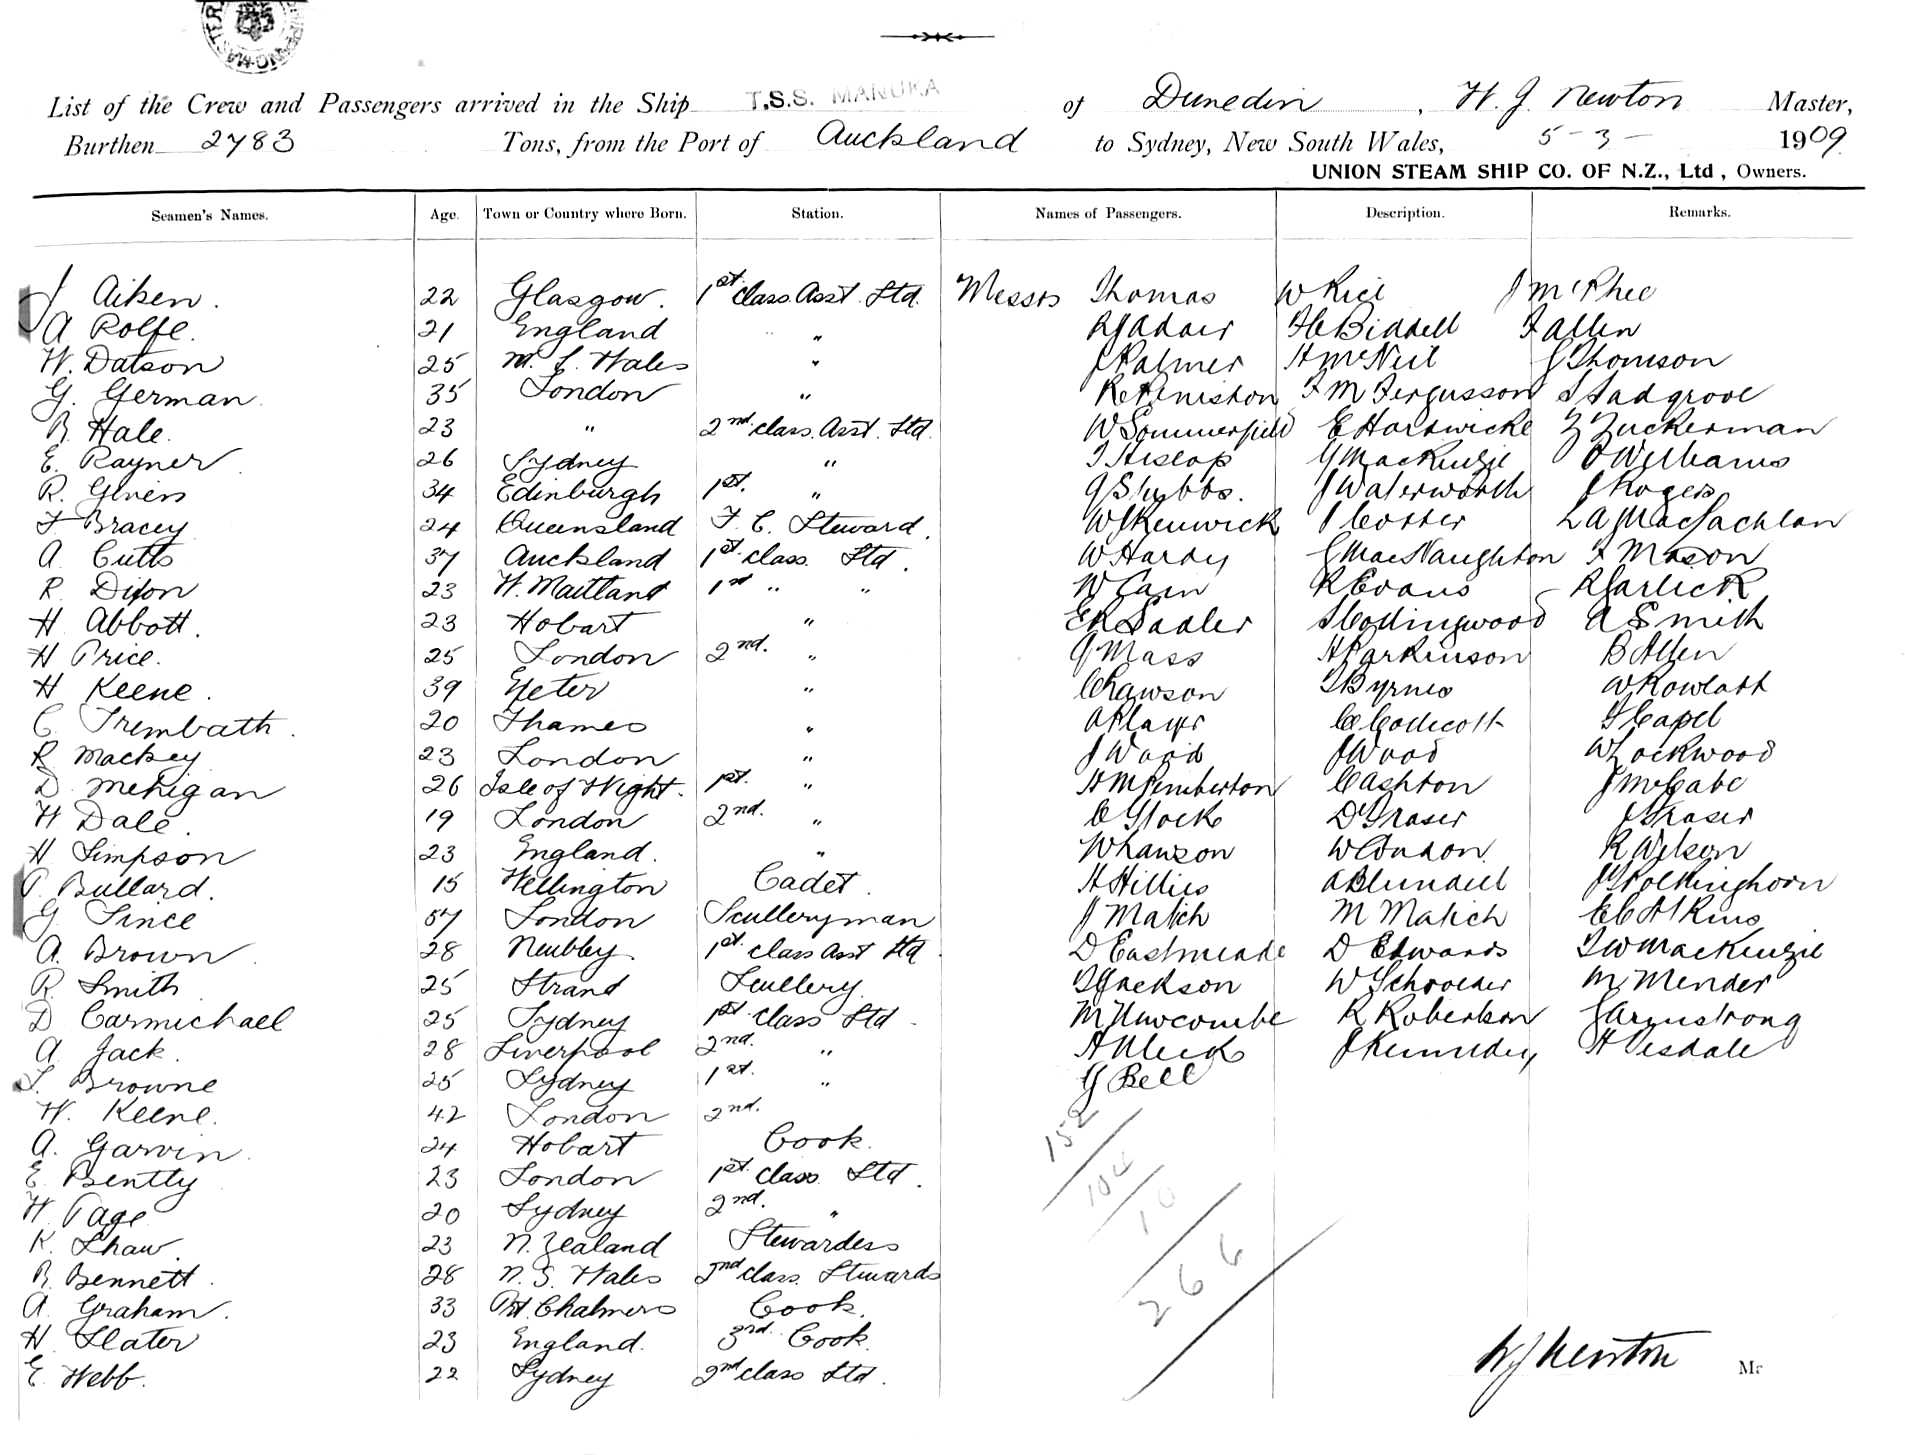 List of the Crew and Passengers arrived in the Ship T.S.S. MANUKA of Dunedin, W. J. Newton Master,
Burthen 2783 Tons, from the Port of Auckland to Sydney, New South Wales, 5-3-1909
UNION STEAM SHIP CO. OF N.Z., Ltd, Owners.
Seamen's Names. Age. Town or Country where Born. Station. Names of Passengers. Description. Remarks.
J Aiken. 22 Glasgow. 1st class Asst Std. Messrs Thomas W Rice J McPhee
A Rolfe. 21 England " R J Adair Biddell F Allen
W. Datson 25 Wales " J Palmer H McNeil J Thomson
G. German 35 London " R Peniston F M Fergusson S Sadgrove
R. Hale. 23 " 2nd class. Asst. Std. W Sommerfield E Hardwicke Z Zuckerman
E. Rayner 26 Sydney " T Hislop G MacKenzie J Williams
R. Givens 34 Edinburgh 1st. " G Stubbs. J Waterworth J Rogers
F Bracey 24 Queensland F. C. Steward. W J Kenwick J Cotter L A J MacLachlan
A. Cutts 37 Auckland 1st class. Std. W Hardy G MacNaughton F Mason
R. Dixon 23 W. Maitland " " W Cain R Evans R Garlick
H Abbott. 23 Hobart " E R Sadler S Codingwood A Smith
H Price. 25 London 2nd. " G Mass H Parkinson B Allen
H Keene. 39 Exeter " C Rawson T Byrnes W Rowlatt
C. Trembath. 20 Thames " A Player C Codicott T Capel
R Mackey 23 London " J Wood J Wood W Lockwood
D. Mehigan 26 Isle of Wight. 1st. " H M Pemberton C Ashton J McCabe
H Dale. 19 London 2nd. " C Stock D Fraser J Fraser
H Simpson 23 England. " W Hanson W Condon R Wilson
P. Bullard. 15 Wellington Cadet. H Hillies A Blundell J Polkinghorn
G. Since 57 London Sculleryman J Matich M Matich C C Atkins
A. Brown 28 1st class Asst Std. D Eastmeade D Edwards T W MacKenzie
R. Smith 25 Strand Scullery. Jackson W Schroeder M Mender
D Carmichael 25 Sydney 1st class Std. M Newcombe R Robertson J Armstrong
A. Jack. 28 Liverpool 2nd. " A Meek J Kennedy H Tisdale
Browne 25 Sydney 1st. " G Bell
W. Keene. 42 London 2nd.
A. Garvin. 24 Hobart Cook.
E. Bently 23 London 1st class. Std.
H. Page 20 Sydney 2nd. "
K. Shaw. 23 N. Zealand Stewardess
R. Bennett. 28 N. S. Wales 2nd class. Stewards
A. Graham. 33 Pt. Chalmers Cook.
H Slater 23 England. 3rd. Cook.
E. Webb. 22 Sydney 2nd class Std.
152
104
10
266
W J Newton